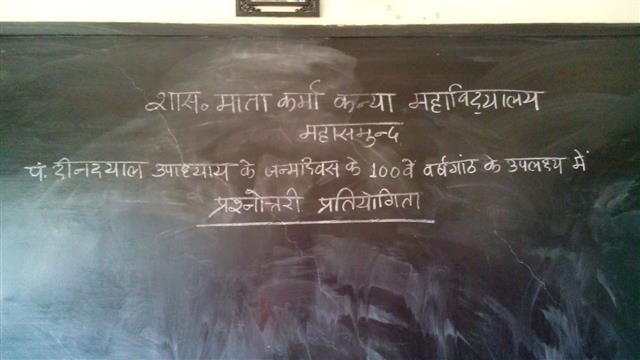 शास. माता कर्मा कन्या महाविद्यालय
महासमुन्द
पं. दीनदयाल उपाध्याय के जन्मदिवस के 100वें वर्षगांठ के उपलक्ष्य में
प्रश्नोत्तरी प्रतियोगिता